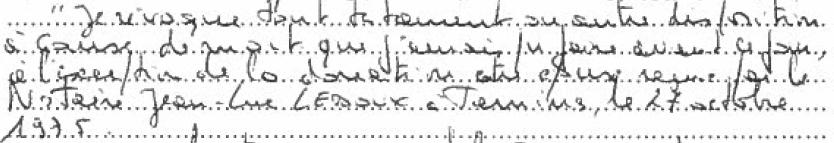 "Je révoque tout testament ou autre disposition
à cause de mort que j'aurais pu faire avant ce jour,
à l'exception de la donation entre époux reçue par le
Notaire Jean-Luc LEDOUX à Tamines, le 27 octobre
1975